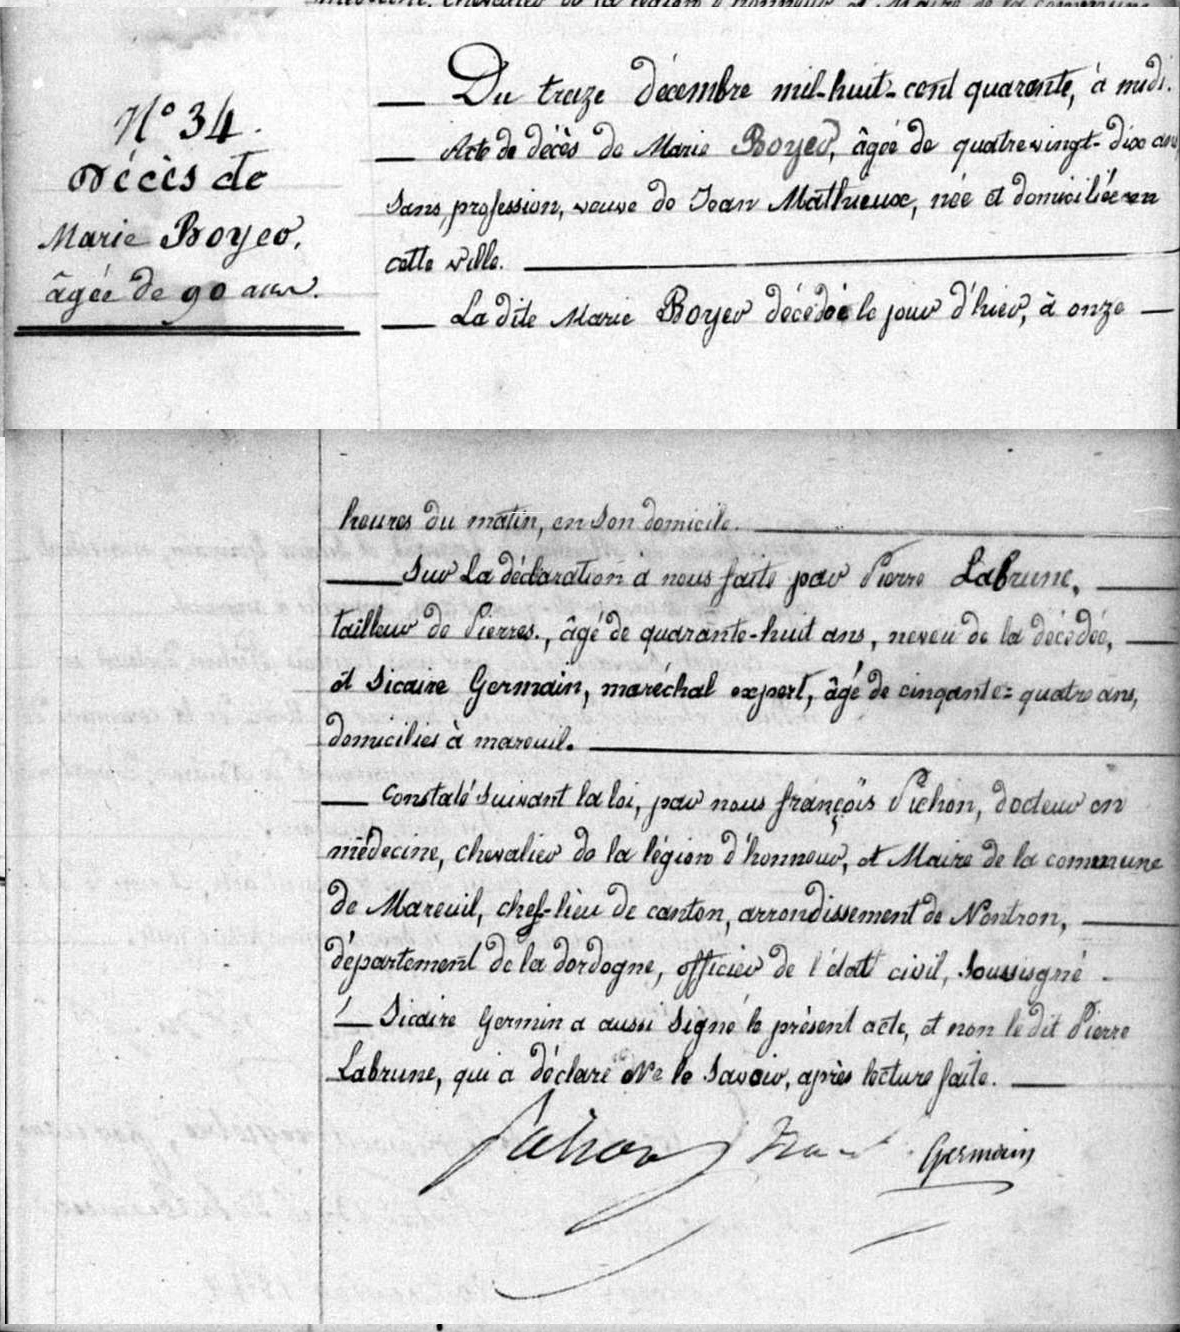 médecine, chevalier de la légion d'honneur et Maire de la commune
N° 34.
Décès de
Marie Boyer,
âgée de 90 ans.
Du treize décembre mil-huit-cent quarante, à midi.
Acte de décès de Marie Boyer, âgée de quatrevingt-dix ans
sans profession, veuve de Jean Mathieux, née et domiciliée en
cette ville.
La dite Marie Boyer décédée le jour d'hier, à onze
heures du matin, en son domicile.
Sur la déclaration a nous faite par Pierre Labrune,
tailleur de Pierres., âgé de quarante-huit ans, neveu de la décédée,
et Sicaire Germain, maréchal expert, âgé de cinqante-quatre ans,
domiciliés à mareuil.
Constaté Suivant la loi, par nous françois Pichon, docteur en
médecine, chevalier de la légion d'honneur, et Maire de la commune
de Mareuil, chef-lieu de canton, arrondissement de Nontron,
département de la dordogne, officier de l'état civil, Soussigné
Sicaire Germin a aussi Signé le présent acte, et non le dit Pierre
Labrune, qui a déclaré Ne le Savoir, après lecture faite.
Pichon Germain